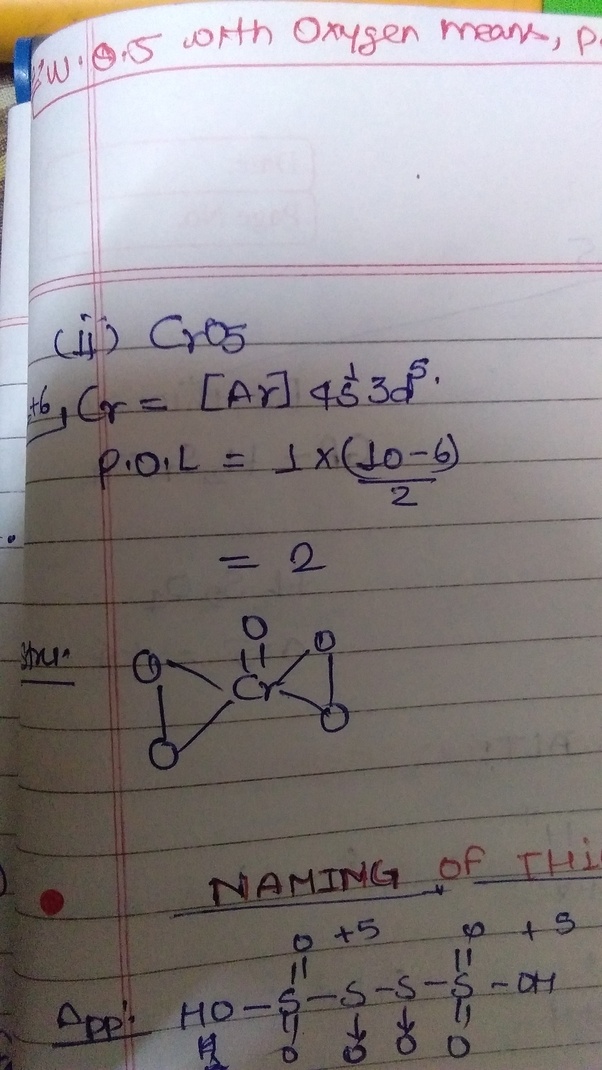 W.O.S with Oxygen means, P.
(ii) CrO5
+6, Cr = [Ar] 4s1 3d5.
P.O.L = 1 x (10-6)
2
= 2
Stru.
O
O O
Cr
O O
NAMING OF THI
O +5 O +5
App: HO-S-S-S-S-OH
O O O O